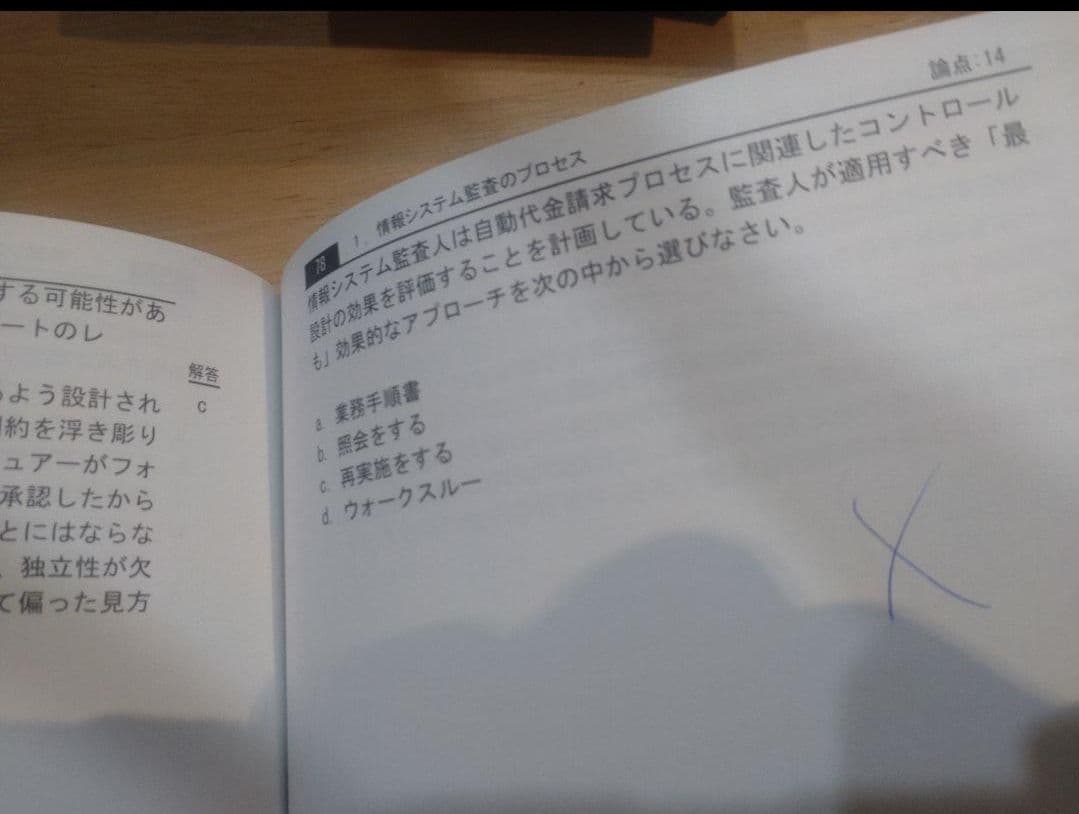 する可能性があ
ートのレ
解答
よう設計され
c
約を浮き彫り
ュアーがフォ
承認したから
とにはならな
、独立性が欠
て偏った見方
論点:14
78
1. 情報システム監査のプロセス
情報システム監査人は自動代金請求プロセスに関連したコントロール
設計の効果を評価することを計画している。監査人が適用すべき「最
も」効果的なアプローチを次の中から選びなさい。
a. 業務手順書
b. 照会をする
c. 再実施をする
d. ウォークスルー